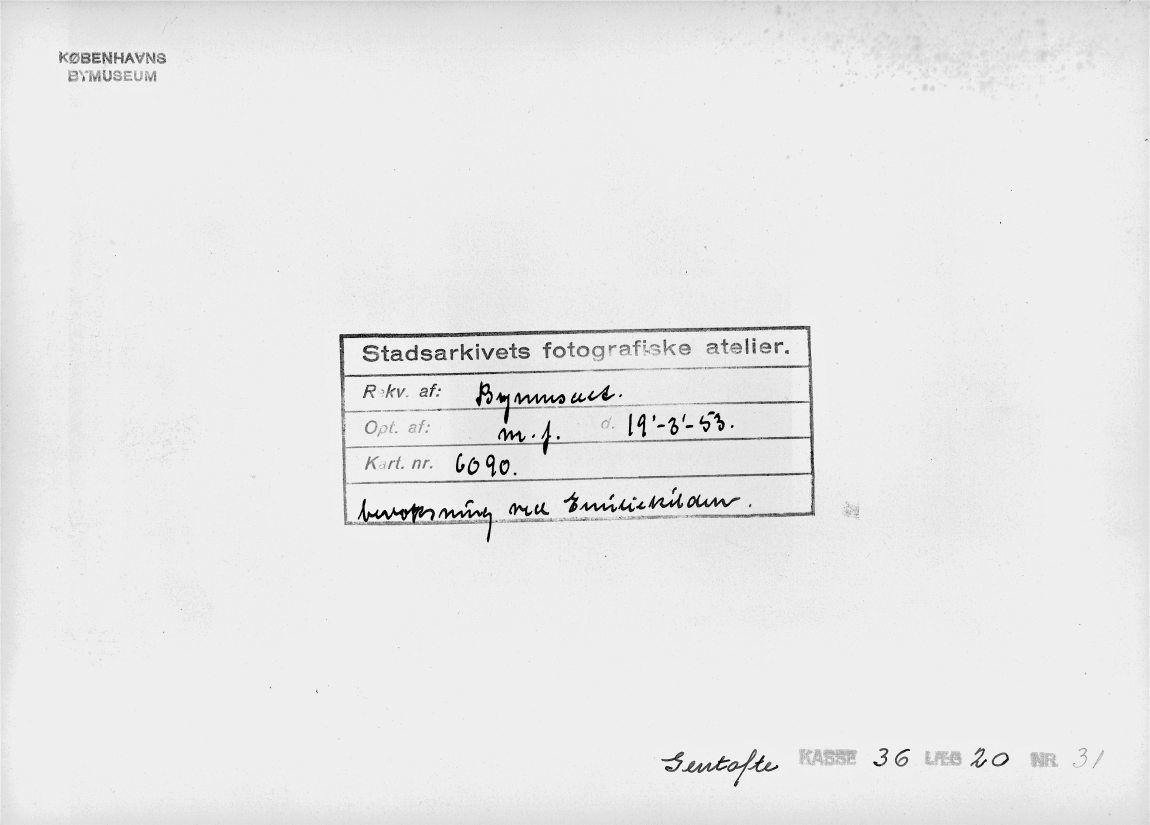 KØBENHAVNS
BYMUSEUM
Stadsarkivets fotografiske atelier.
Rekv. af: Bymuseet.
Opt. af: m.f. d. 19'-3'-53.
Kart. nr. 6090.
bevoksning ved Emiliekilden.
Gentofte KASSE 36 LÆG 20 NR. 31